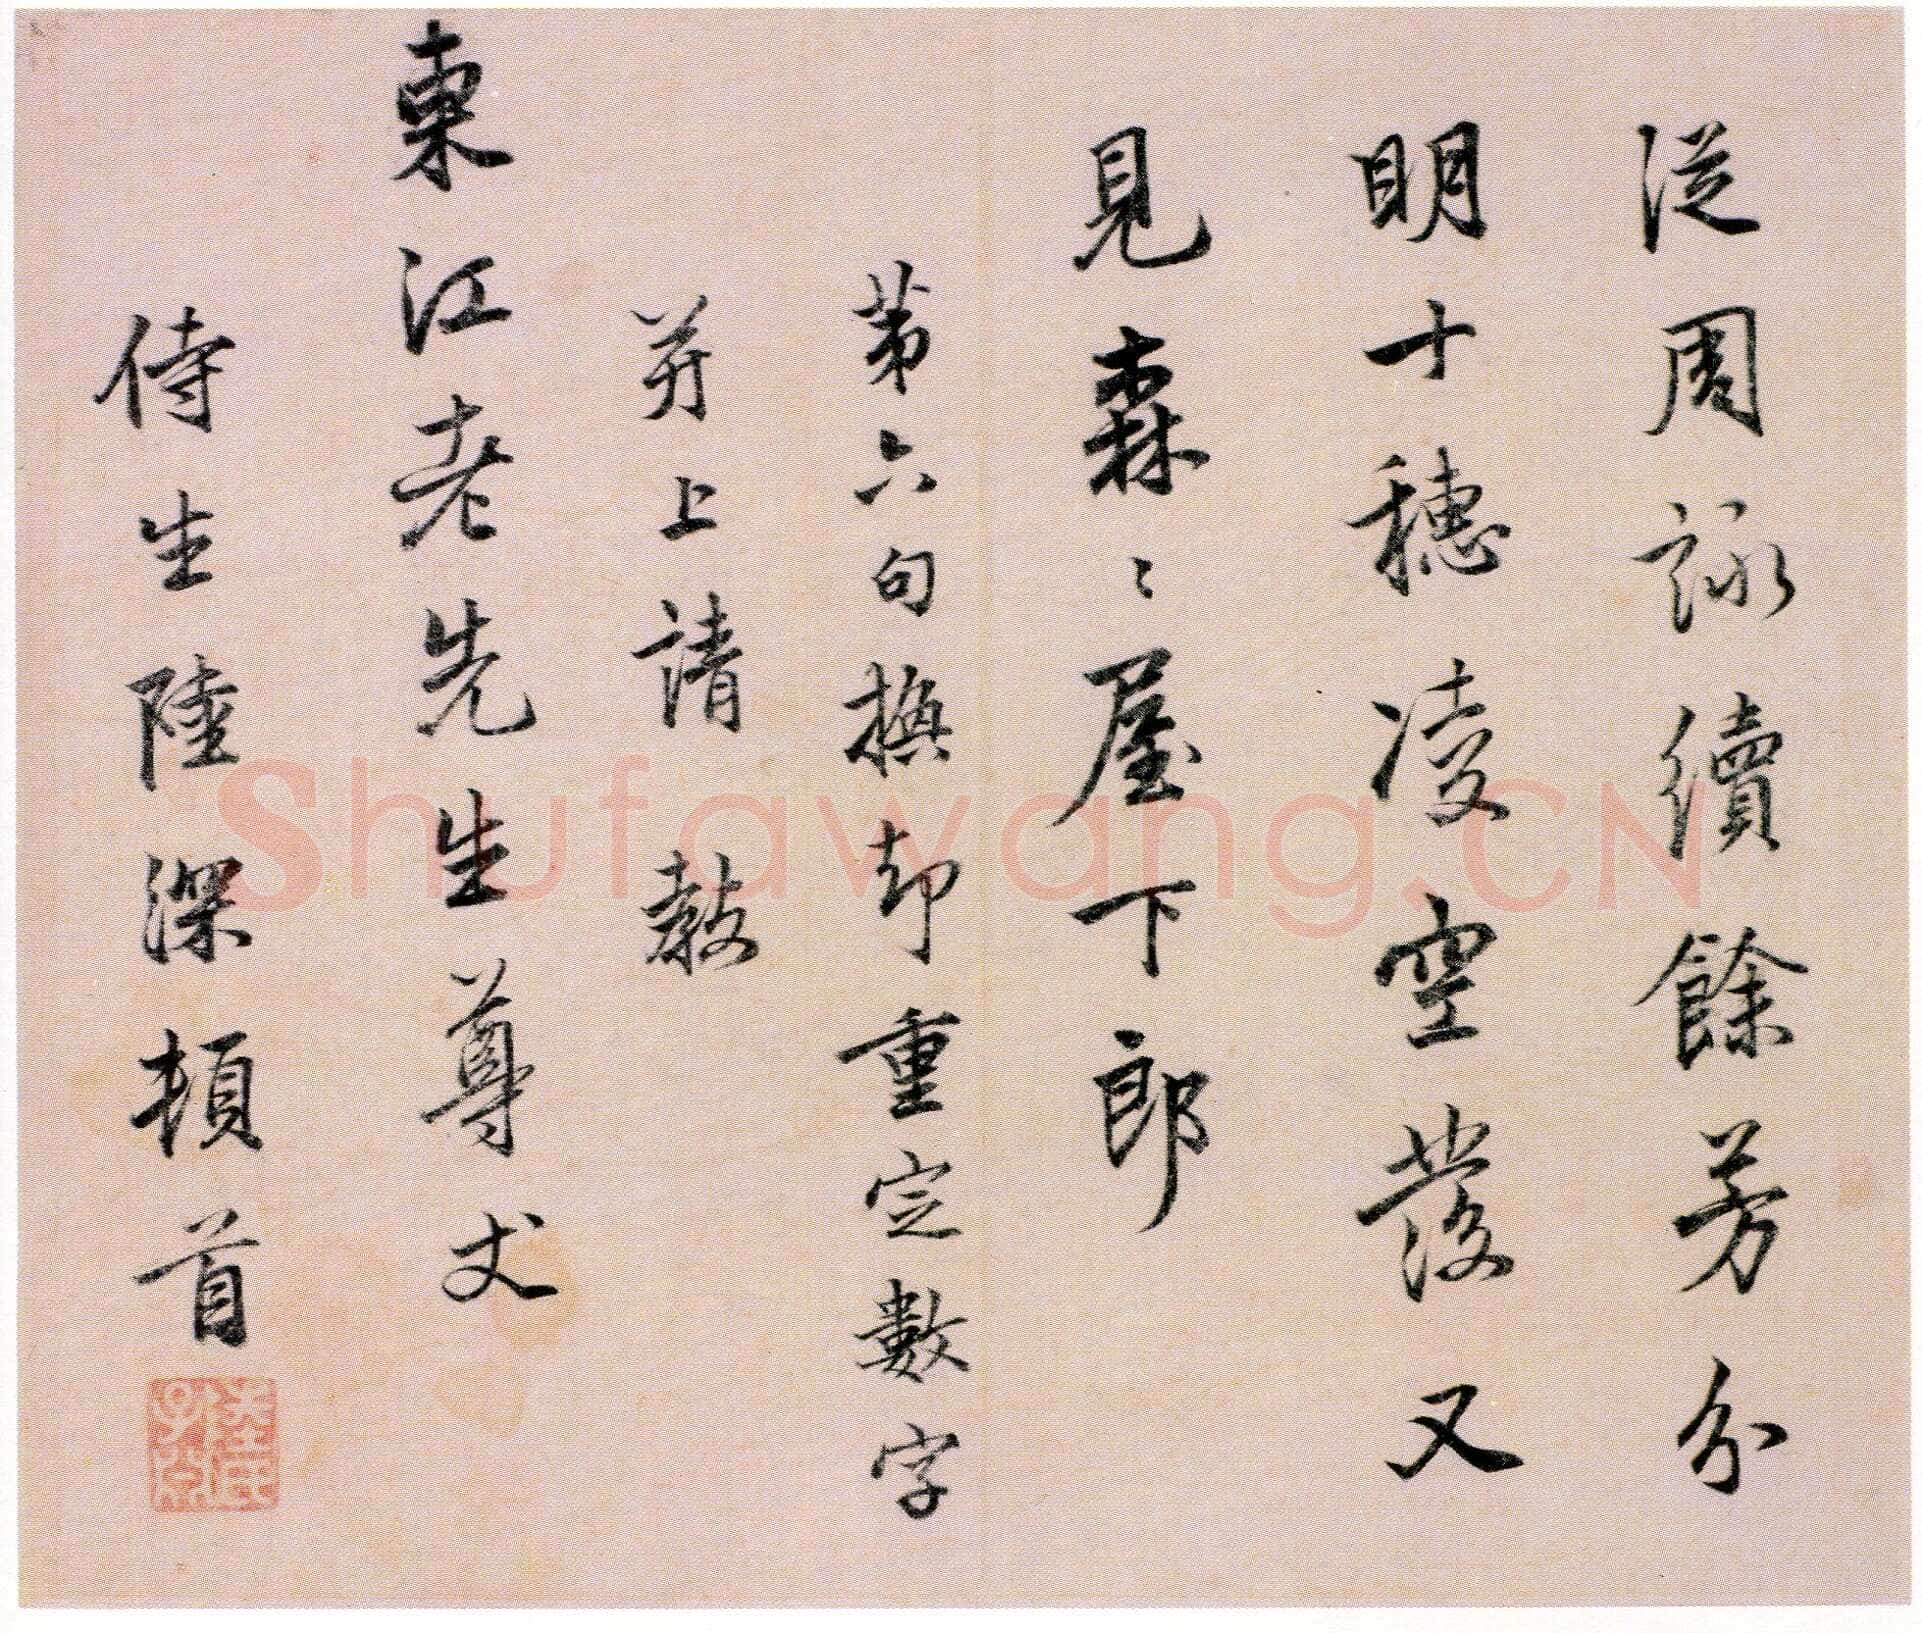 從周詠續餘芳分
明十穗凌空發又
見森〻屋下郎
第六句撫却重定數字
并上請教
東江老先生尊丈
侍生陸深頓首
陸氏子淵
Shufawang.CN